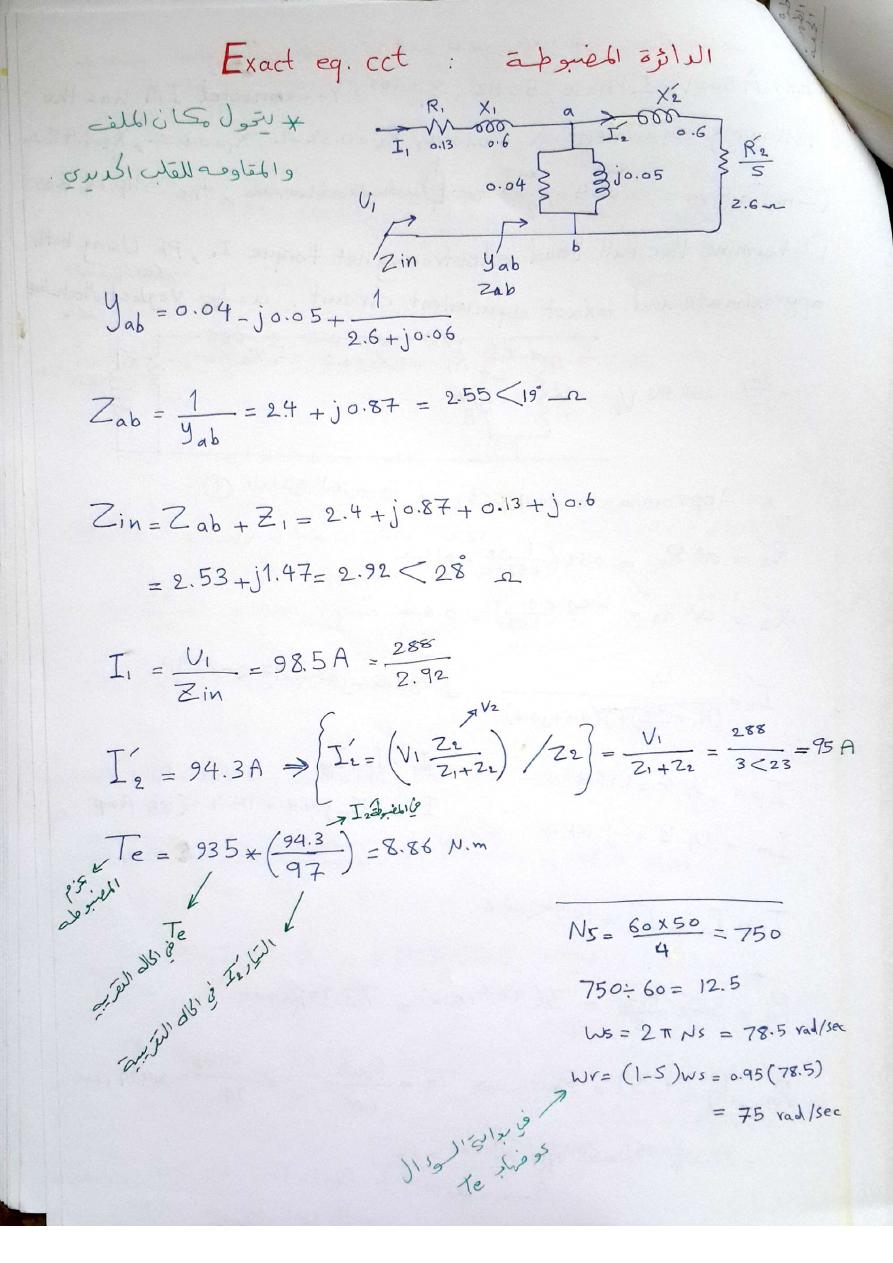 Exact eq. cct : الدائرة المضبوطة
* يتحول مكان الملف
والمقاومه للقلب الحديدي.
R₁ X₁ a X₂′
I₁ 0.13 0.6 I₂′ 0.6
R₂′/S
0.04 j0.05
2.6Ω
V₁
b
Zin Yab
Zab
Yab = 0.04 - j0.05 + 1/(2.6 + j0.06)
Zab = 1/Yab = 2.4 + j0.87 = 2.55 < 19° Ω
Zin = Zab + Z₁ = 2.4 + j0.87 + 0.13 + j0.6
= 2.53 + j1.47 = 2.92 < 28° Ω
I₁ = V₁/Zin = 98.5 A = 288/2.92
V₂
I₂′ = 94.3 A ⇒ { I₂′ = (V₁ Z₂/(Z₁+Z₂)) / Z₂ } = V₁/(Z₁+Z₂) = 288/(3<23) = 95 A
I₂′ في المضبوطة
Te = 935 * (94.3/97) = 8.86 N.m
عزم
المضبوطه
Te
في الحاله التقريبيه
التيار I₂′ في الحاله التقريبية
Ns = (60 x 50)/4 = 750
750 ÷ 60 = 12.5
Ws = 2 π Ns = 78.5 rad/sec
Wr = (1-S) ws = 0.95 (78.5)
= 75 rad/sec
في بداية السؤال
Te